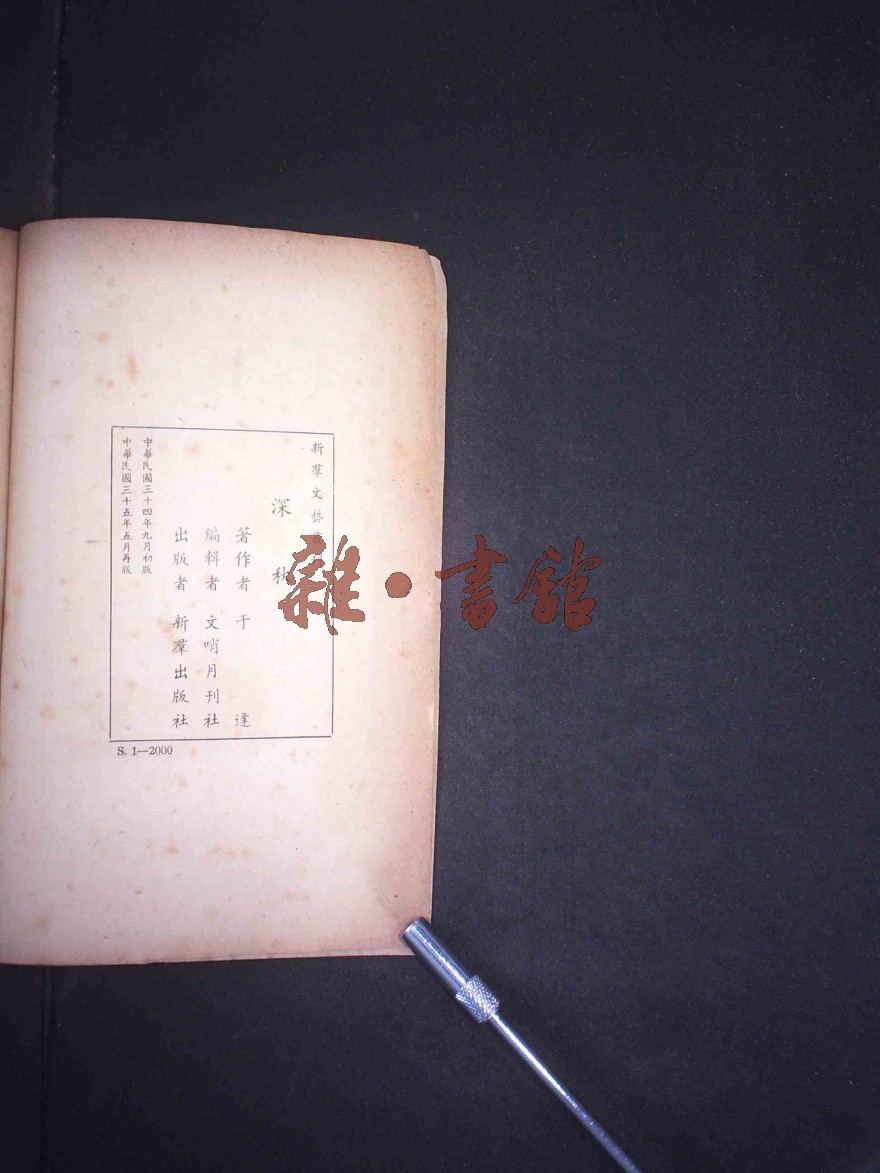 新羣文藝
深秋
著作者 于逢
編輯者 文哨月刊社
出版者 新羣出版社
中華民國三十四年九月初版
中華民國三十五年五月再版
S. 1—2000
雜·書館